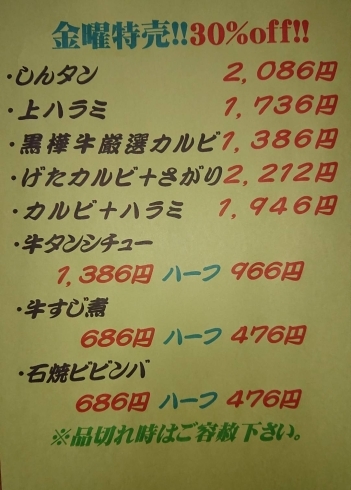 金曜特売!!30%off!!
・しんタン 2,086円
・上ハラミ 1,736円
・黒樺牛厳選カルビ 1,386円
・げたカルビ+さがり 2,212円
・カルビ+ハラミ 1,946円
・牛タンシチュー
1,386円 ハーフ 966円
・牛すじ煮
686円 ハーフ 476円
・石焼ビビンバ
686円 ハーフ 476円
※品切れ時はご容赦下さい。